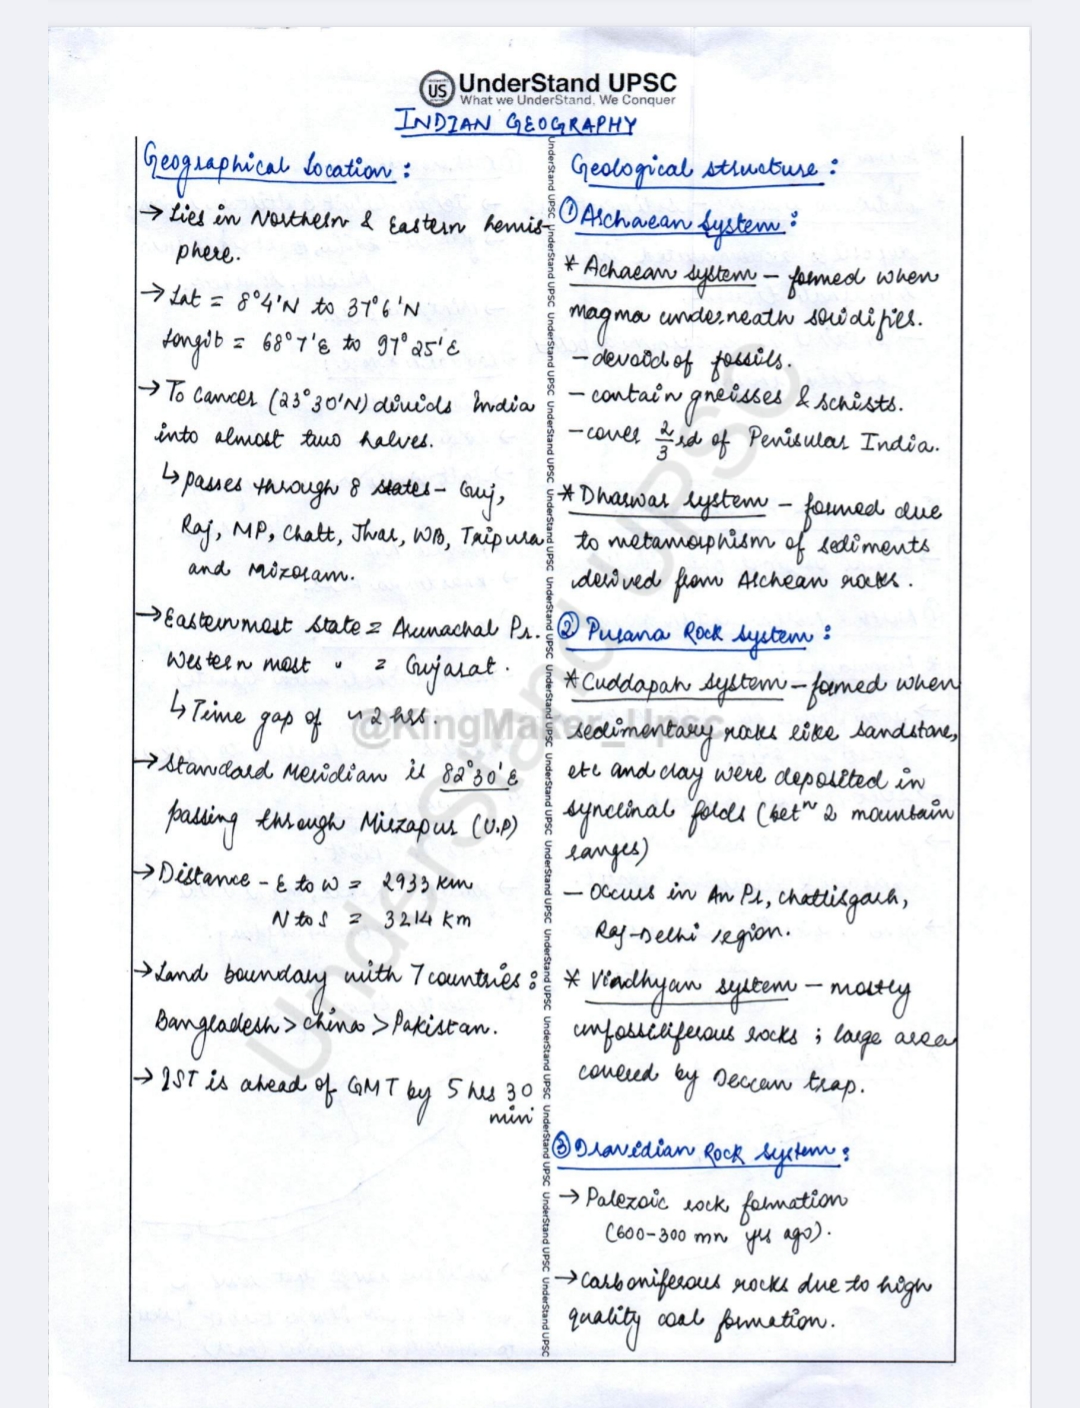 US UnderStand UPSC
What we UnderStand, We Conquer
INDIAN GEOGRAPHY
Geographical Location :
→ Lies in Northern & Eastern hemis-
phere.
→ Lat = 8°4'N to 37°6'N
Longit = 68°7'E to 97°25'E
→ To Cancer (23°30'N) divids India
into almost two halves.
↳ passes through 8 states - Guj,
Raj, MP, Chatt, Jhar, WB, Tripura
and Mizoram.
→ Easternmost state = Arunachal Pr.
Western most " = Gujarat.
↳ Time gap of ~2 hrs.
→ Standard Meridian is 82°30'E
passing through Mirzapur (U.P)
→ Distance - E to W = 2933 km
N to S = 3214 km
→ Land boundary with 7 countries :
Bangladesh > China > Pakistan.
→ IST is ahead of GMT by 5 hrs 30
min
UnderStand UPSC UnderStand UPSC UnderStand UPSC UnderStand UPSC UnderStand UPSC UnderStand UPSC UnderStand UPSC UnderStand UPSC UnderStand UPSC UnderStand UPSC UnderStand UPSC UnderStand UPSC UnderStand UPSC UnderStand UPSC
Geological structure :
① Archaean System :
* Achaean system - formed when
magma underneath solidifies.
- devoid of fossils.
- contain gneisses & schists.
- cover 2/3rd of Penisular India.
* Dharwar system - formed due
to metamorphism of sediments
derived from Archean rocks.
② Purana Rock system :
* Cuddapah system - formed when
sedimentary rocks like sandstone,
etc and clay were deposited in
synclinal folds (betⁿ 2 mountain
ranges)
- Occurs in An Pr, Chattisgarh,
Raj-Delhi region.
* Vindhyan system - mostly
unfossiliferous rocks ; large area
covered by Deccan trap.
③ Dravidian Rock system :
→ Palezoic rock formation
(600-300 mn yrs ago).
→ Carboniferous rocks due to high
quality coal formation.
UnderStand UPSC
@KingMaker_Upsc